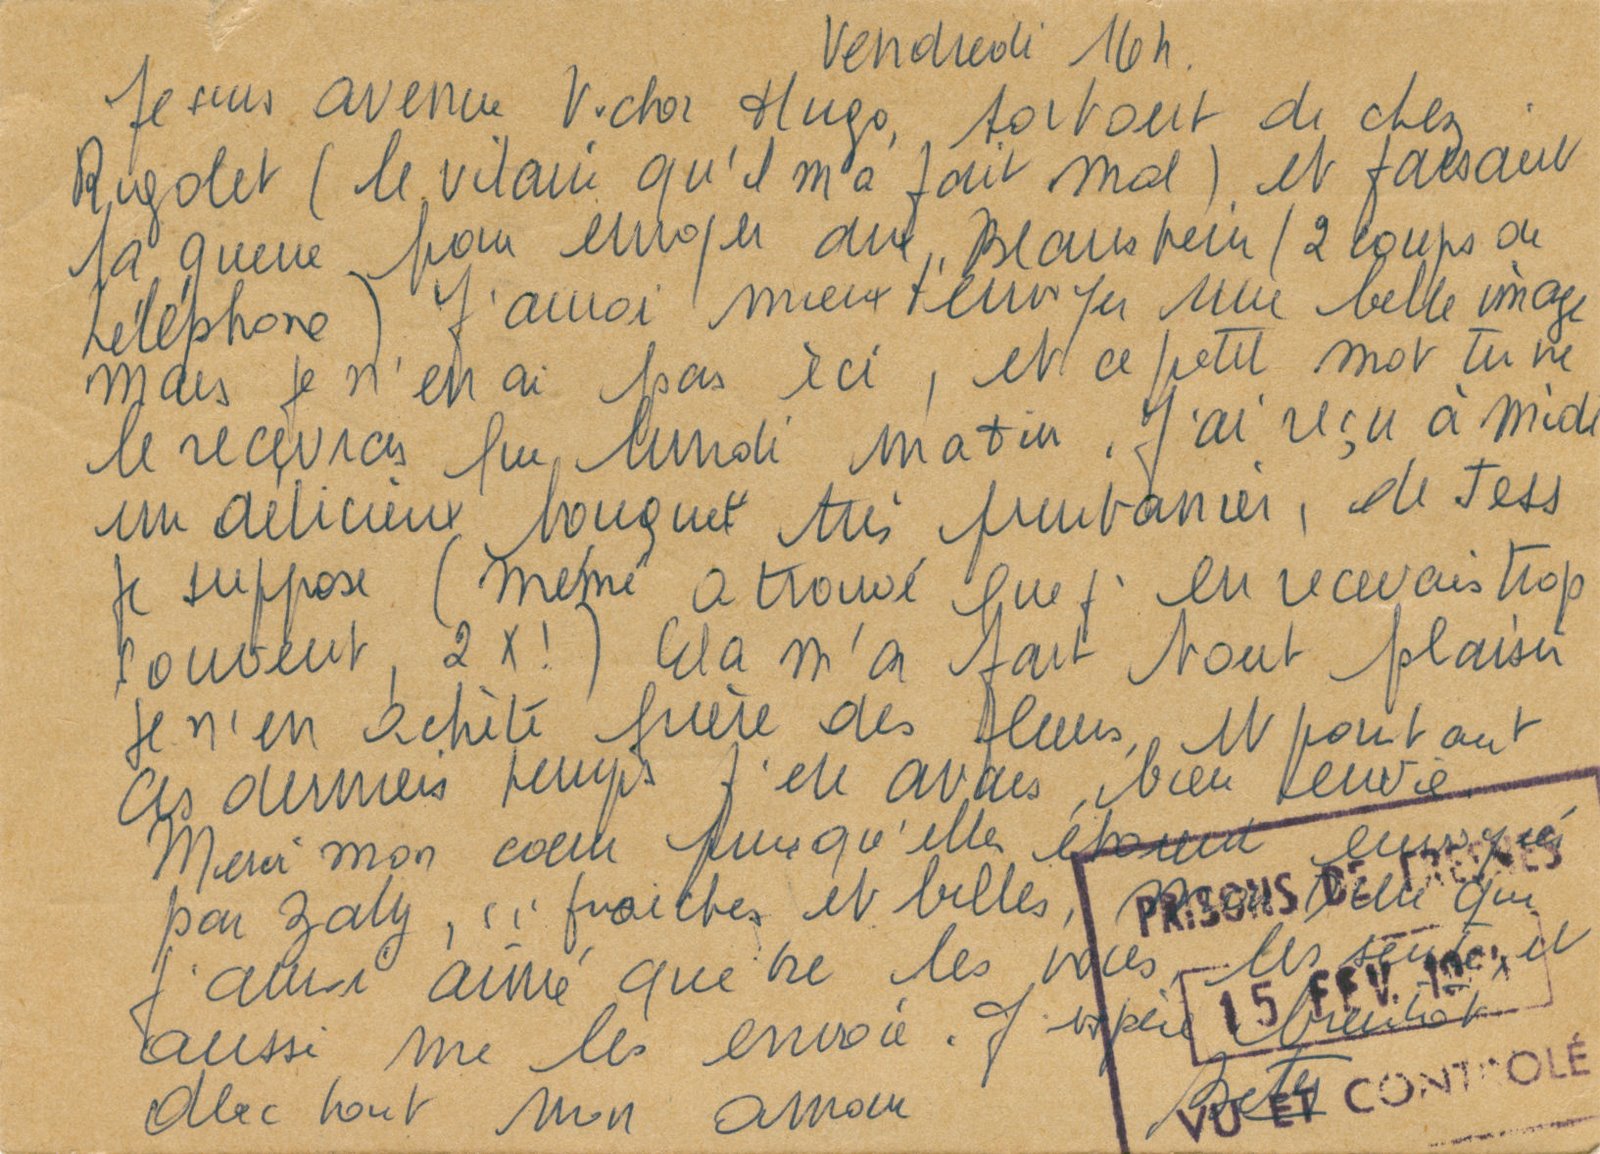 Vendredi 16 h.
Je suis avenue Victor Hugo, sortant de chez
Rigolet (le vilain qu'il m'a fait mal) et faisant
la queue pour envoyer aux Blaustein (2 coups de
téléphone) J'aurai mieux t'envoyer une belle image
mais je n'en ai pas ici, et ce petit mot tu ne
le recevras que lundi matin. J'ai reçu à midi
un délicieux bouquet très printanier, de Tess
je suppose (mémé a trouvé que j'en recevais trop
souvent, 2 x!) Cela m'a fait tout plaisir
je n'en achète guère des fleurs, et pourtant
ces derniers temps j'en avais bien envie.
Merci mon coeur puisqu'elles étaient envoyées
par Zaly, fraiches et belles, que
j'aurai aimé que tu les vois, les sente, et
aussi me les envoie. J'espère bientot
Avec tout mon amour Betty
PRISONS DE FRESNES
15 FEV.
VU ET CONTROLÉ